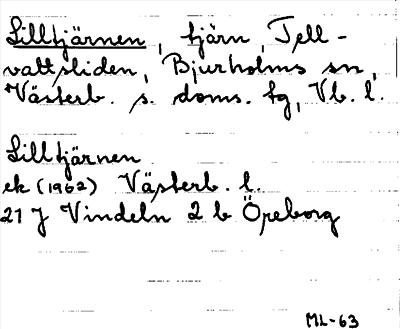 Lilltjärnen, tjärn, Tell-
vattsliden, Bjurholms sn,
Västerb. s. doms. tg, Vb. l.
Lilltjärnen
ek (1962) Västerb. l.
21 J Vindeln 2 b Öreborg
ML-63